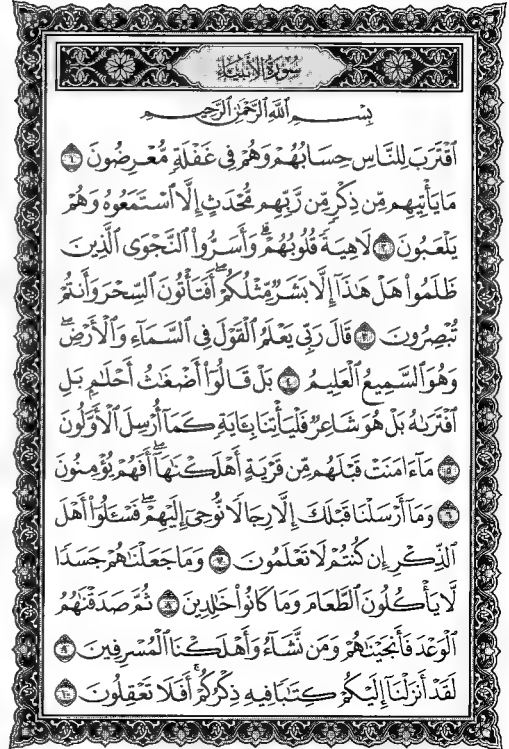 سُورَةُ الأَنبِيَاءِ
بِسْمِ اللَّهِ الرَّحْمَٰنِ الرَّحِيمِ
ٱقْتَرَبَ لِلنَّاسِ حِسَابُهُمْ وَهُمْ فِى غَفْلَةٍ مُّعْرِضُونَ ١
مَايَأْتِيهِم مِّن ذِكْرٍ مِّن رَّبِّهِم مُّحْدَثٍ إِلَّا ٱسْتَمَعُوهُ وَهُمْ
يَلْعَبُونَ ٢ لَاهِيَةً قُلُوبُهُمْ ۗ وَأَسَرُّواْ ٱلنَّجْوَى ٱلَّذِينَ
ظَلَمُواْ هَلْ هَٰذَآ إِلَّا بَشَرٌ مِّثْلُكُمْ ۖ أَفَتَأْتُونَ ٱلسِّحْرَ وَأَنتُمْ
تُبْصِرُونَ ٣ قَالَ رَبِّى يَعْلَمُ ٱلْقَوْلَ فِى ٱلسَّمَآءِ وَٱلْأَرْضِ ۖ
وَهُوَ ٱلسَّمِيعُ ٱلْعَلِيمُ ٤ بَلْ قَالُوٓاْ أَضْغَٰثُ أَحْلَٰمٍ بَلِ
ٱفْتَرَىٰهُ بَلْ هُوَ شَاعِرٌ فَلْيَأْتِنَا بِـَٔايَةٍ كَمَآ أُرْسِلَ ٱلْأَوَّلُونَ
٥ مَآءَامَنَتْ قَبْلَهُم مِّن قَرْيَةٍ أَهْلَكْنَٰهَآ ۖ أَفَهُمْ يُؤْمِنُونَ
٦ وَمَآ أَرْسَلْنَا قَبْلَكَ إِلَّا رِجَالًا نُّوحِىٓ إِلَيْهِمْ ۖ فَسْـَٔلُوٓاْ أَهْلَ
ٱلذِّكْرِ إِن كُنتُمْ لَا تَعْلَمُونَ ٧ وَمَا جَعَلْنَٰهُمْ جَسَدًا
لَّا يَأْكُلُونَ ٱلطَّعَامَ وَمَا كَانُواْ خَٰلِدِينَ ٨ ثُمَّ صَدَقْنَٰهُمُ
ٱلْوَعْدَ فَأَنجَيْنَٰهُمْ وَمَن نَّشَآءُ وَأَهْلَكْنَا ٱلْمُسْرِفِينَ ٩
لَقَدْ أَنزَلْنَآ إِلَيْكُمْ كِتَٰبًا فِيهِ ذِكْرُكُمْ ۖ أَفَلَا تَعْقِلُونَ ١٠